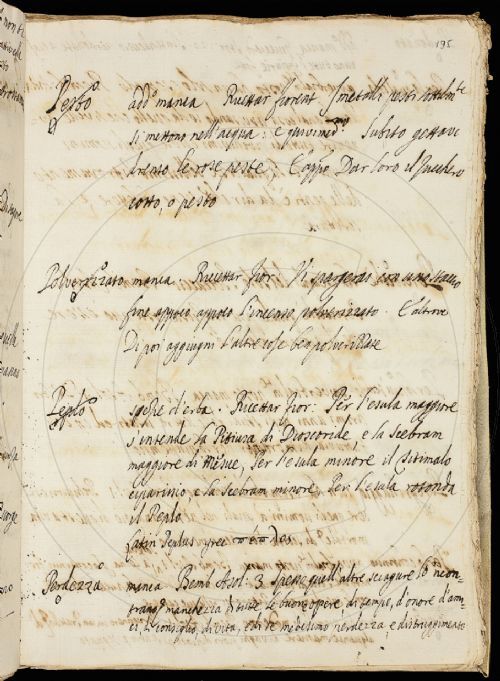 195
Pesto add.º manca Ricettar fiorent I metalli pesti sottilm.te
si mettono nell'acqua: e quivi med.º Subito gettavi
drento le rose peste; e app.º Dar loro il Zucchero
cotto, o pesto
Polverizzato manca. Ricettar fior: Vi spargerai con uno staccio
fine appoco appoco l'incenso polverizzato. E altrove
Di poi aggiugni l'altre cose ben polverizzate
Peplo spezie d'erba. Ricettar fior: Per l'esula maggiore
s'intende la Pitiusa di Dioscoride, e la Scebram
maggiore di Mesue, Per l'esula minore il titimalo
ciparissio, e la Scebram minore, Per l'esula rotonda
il Peplo
Latin Peplus grec πεπλος
Perdezza manca Bemb Asol. 3 Spesse quell'altre sciagure
manchezza di tutte le buone opere, di tempo, d'onore d'ami-
ci, di consiglio, di vita, e di te medesimo perdezza e distruggimento